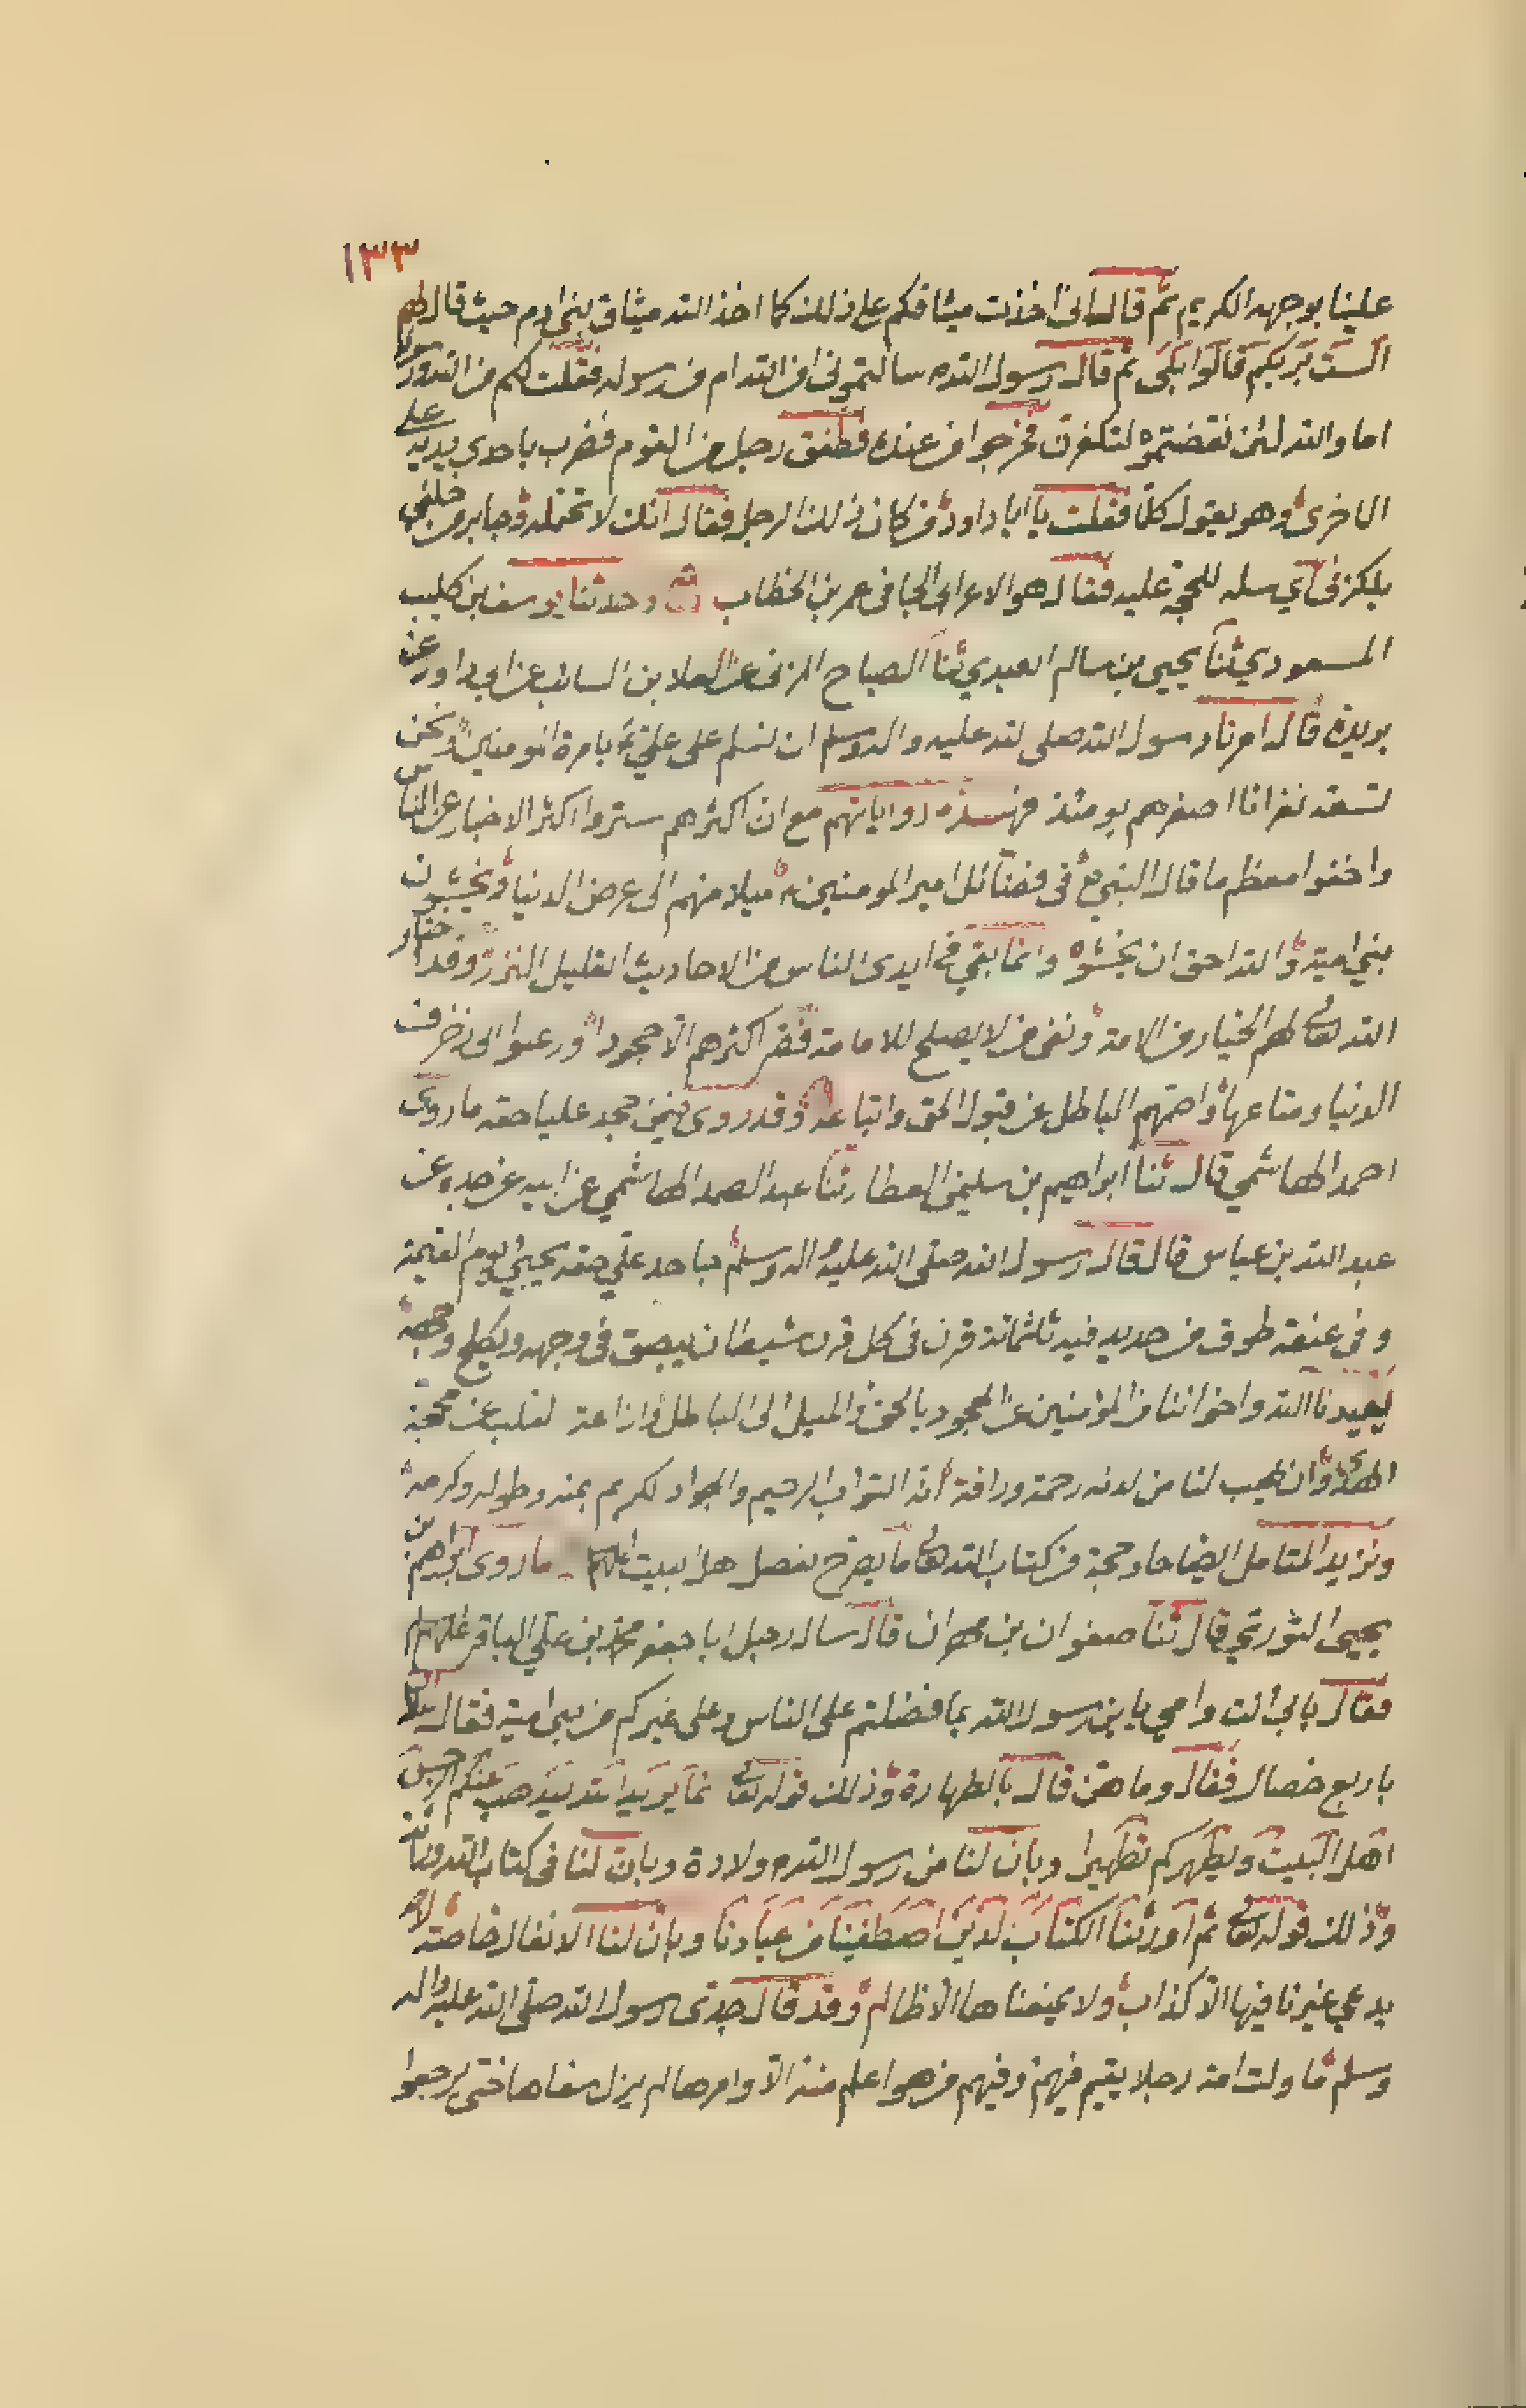 ١٣٣
علينا بوجهه الكريم ثم قال انى اخذت ميثاقكم على ذلك كما اخذ الله ميثاق بنى ادم حيث قال لهم
الست بربكم قالوا بلى ثم قال رسول الله ص سالتمونى امن الله ام من رسوله فقلت لكم من الله ورسوله
اما والله لئن نقضتموه لتكفرن فخرجوا من عنده فطفق رجل من القوم فضرب باحدى يديه على
الاخرى وهو يقول كلا فقلت يا ابا داود من كان ذلك الرجل فقال انك لا تحتمله وجابر من خلفى
يلكزنى اي سله للحجة عليه فقال هو الاعرابى الجافى عمر بن الخطاب وحدثنا يوسف بن كليب
المسعودي ثنا يحيى بن سالم العبدي ثنا الصباح المزنى عن العلا بن السائب عن ابى داود عن
بريدة قال امرنا رسول الله صلى الله عليه واله وسلم ان نسلم على علي ع بامرة المومنين ونحن
تسعة نفر انا اصغرهم يومئذ فهذه رواياتهم مع ان اكثرهم ستروا اكثر الاخبار عن الناس
واخفوا معظم ما قال النبى ص فى فضائل امير المومنين ع ميلا منهم الى عرض الدنيا ويخشون
بنى امية والله احق ان يخشوه وانما بقي فى ايدى الناس من الاحاديث القليل النزر وقد اختار
الله تعالى لهم الخيار من الامة ونفى من لا يصلح للامامة اكثرهم الا جحودا ورغبوا الى زخرف
الدنيا ومتاعها الباطل عن قبول الحق واتباعه وقد روى فيمن جحد عليا حقه ما روى
احمد الهاشمي قال ثنا ابراهيم بن سليمن العطار ثنا عبد الصمد الهاشمي عن ابيه عن جده عن
عبد الله بن عباس قال قال رسول الله صلى الله عليه واله وسلم جاحد علي حقه يحيئ يوم القيمة
وفى عنقه طوق من حديد فيه ثلثمائة قرن فى كل قرن شيطان يبصق فى وجهه ويكلح وجهه
يعيذنا الله واخواننا من المؤمنين عن الجحود بالحق والميل الى الباطل وازاغة لقلب عن محجة
الهدى وان يهب لنا من لدنه رحمة ورافة انه التواب الرحيم والجواد لكريم بمنه وطوله وكرمه
ونزيد المتامل ايضاحا وحجة من كتاب الله تعالى ما يصرح بفضل اهل لبيت ما روى ابراهيم بن
يحيى الثورى قال ثنا صفوان بن مهران قال سال رجل ابا جعفر محمد بن على الباقر عليهم السلام
فقال بابى انت وامى يا بن رسول الله بما فضلتم على الناس وعلى غيركم من بنى امية فقال
باربع خصال فقال وما هن قال بالطهارة وذلك قوله تعالى نما يريد الله ليذهب عنكم الرجس
اهل البيت ويطهركم تطهيرا وبان لنا من رسول الله ص ولادة وبان لنا فى كتاب الله وراثة
وذلك قوله تعالى ثم اورثنا الكتاب لذين اصطفينا من عبادنا وبان لنا الانفال خاصة لا
يدعى غيرنا فيها الا كذاب ولا يمنعناها الا ظالم وقد قال جدى رسول الله صلى الله عليه واله
وسلم ما ولت امة رجلا يقيم فيهم وفيهم من هو اعلم منه الا وامرها لم يزل سفاها حتى يرجعوا